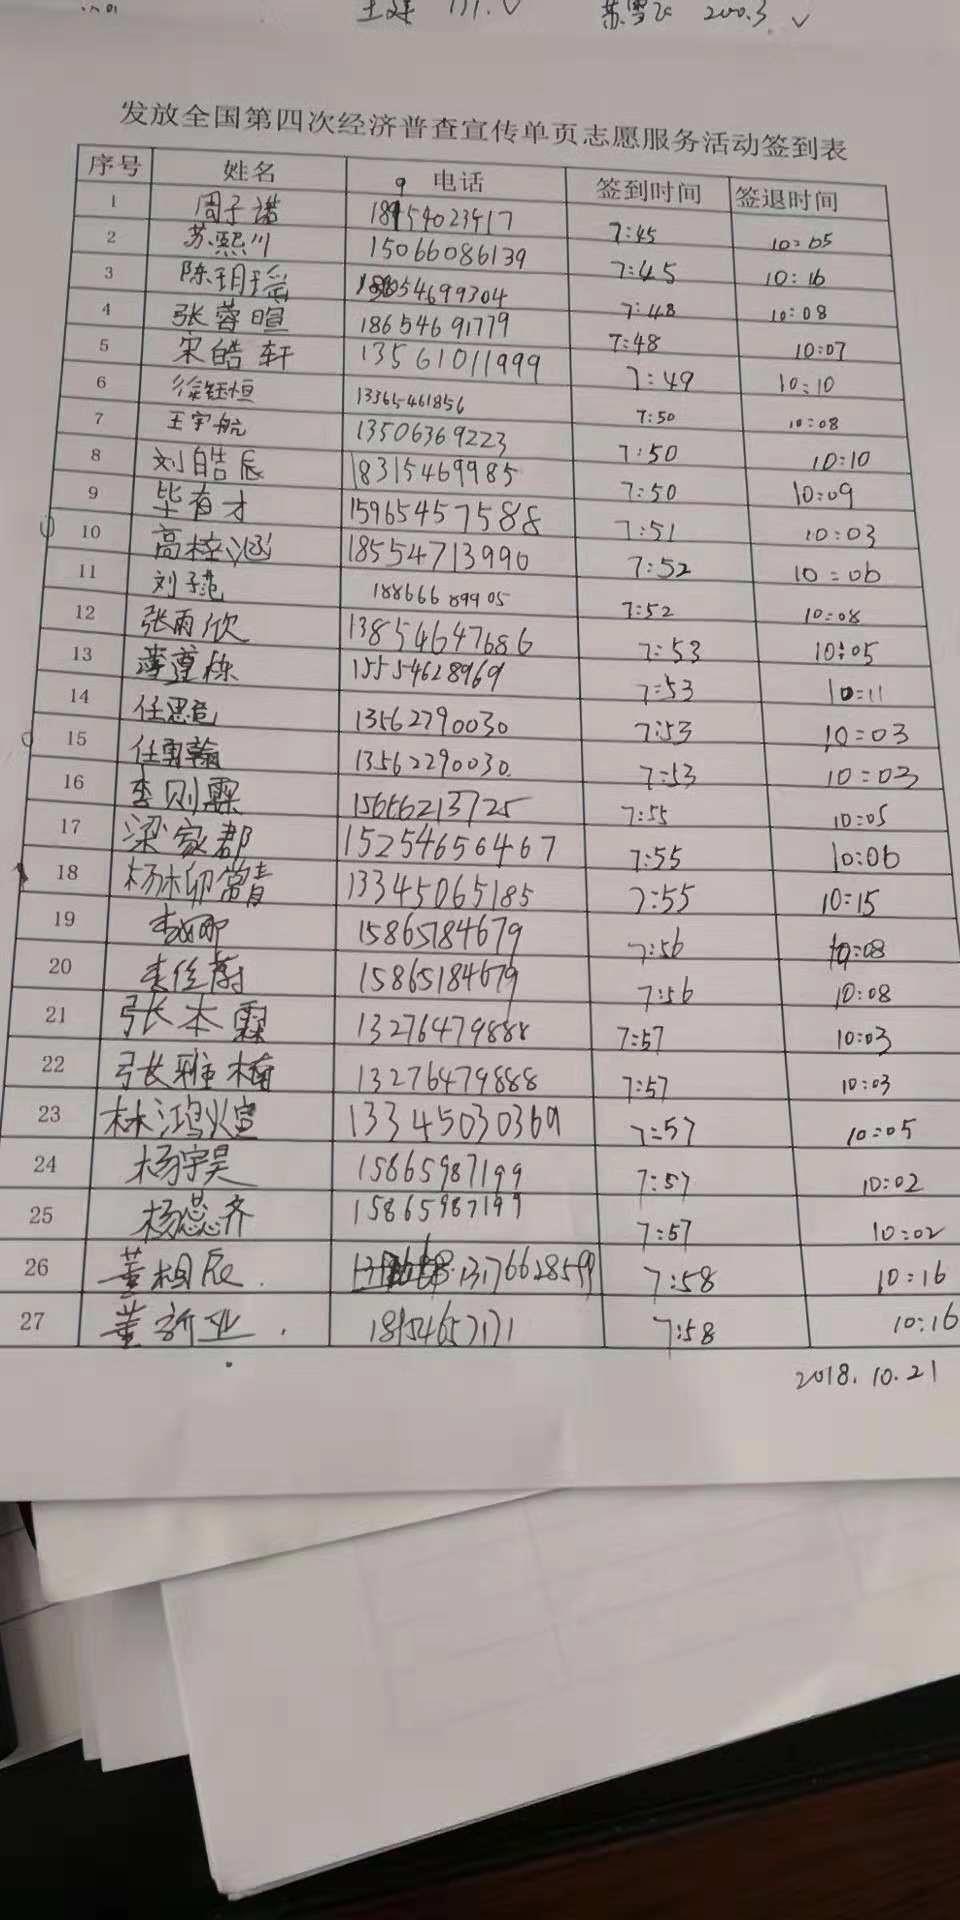 王 议 111.√ 苏雪飞 200.3 √
发放全国第四次经济普查宣传单页志愿服务活动签到表
序号 姓名 电话 签到时间 签退时间
1 周子诺 18954023417 7:45 10:05
2 苏熙川 15066086139 7:45 10:16
3 陈玥瑶 18054699304 7:48 10:08
4 张蓉暄 18654691779 7:48 10:07
5 宋皓轩 13561011999 7:49 10:10
6 徐钰恒 13365461856 7:50 10:08
7 王宇航 13506369223 7:50 10:10
8 刘皓辰 18315469985 7:50 10:09
9 毕有才 15965457588 7:51 10:03
10 高梓涵 18554713990 7:52 10:06
11 刘子范 18866689905 7:52 10:08
12 张雨欣 13854647686 7:53 10:05
13 李莲栋 15554628969 7:53 10:11
14 任思危 13562290030 7:53 10:03
15 任勇翰 13562290030. 7:53 10:03
16 李则霖 15666213725 7:55 10:05
17 梁家郡 15254656467 7:55 10:06
18 杨柳常青 13345065185 7:55 10:15
19 李娜 15865184679 7:56 10:08
20 李佳蔚 15865184679 7:56 10:08
21 张本霖 13276479888 7:57 10:03
22 张雅楠 13276479888 7:57 10:03
23 林鸿煊 13345030369 7:57 10:05
24 杨宇昊 15865987199 7:57 10:02
25 杨蕊齐 15865987199 7:57 10:02
26 董相辰. 13176628599 7:58 10:16
27 董新业. 18154657171 7:58 10:16
2018.10.21